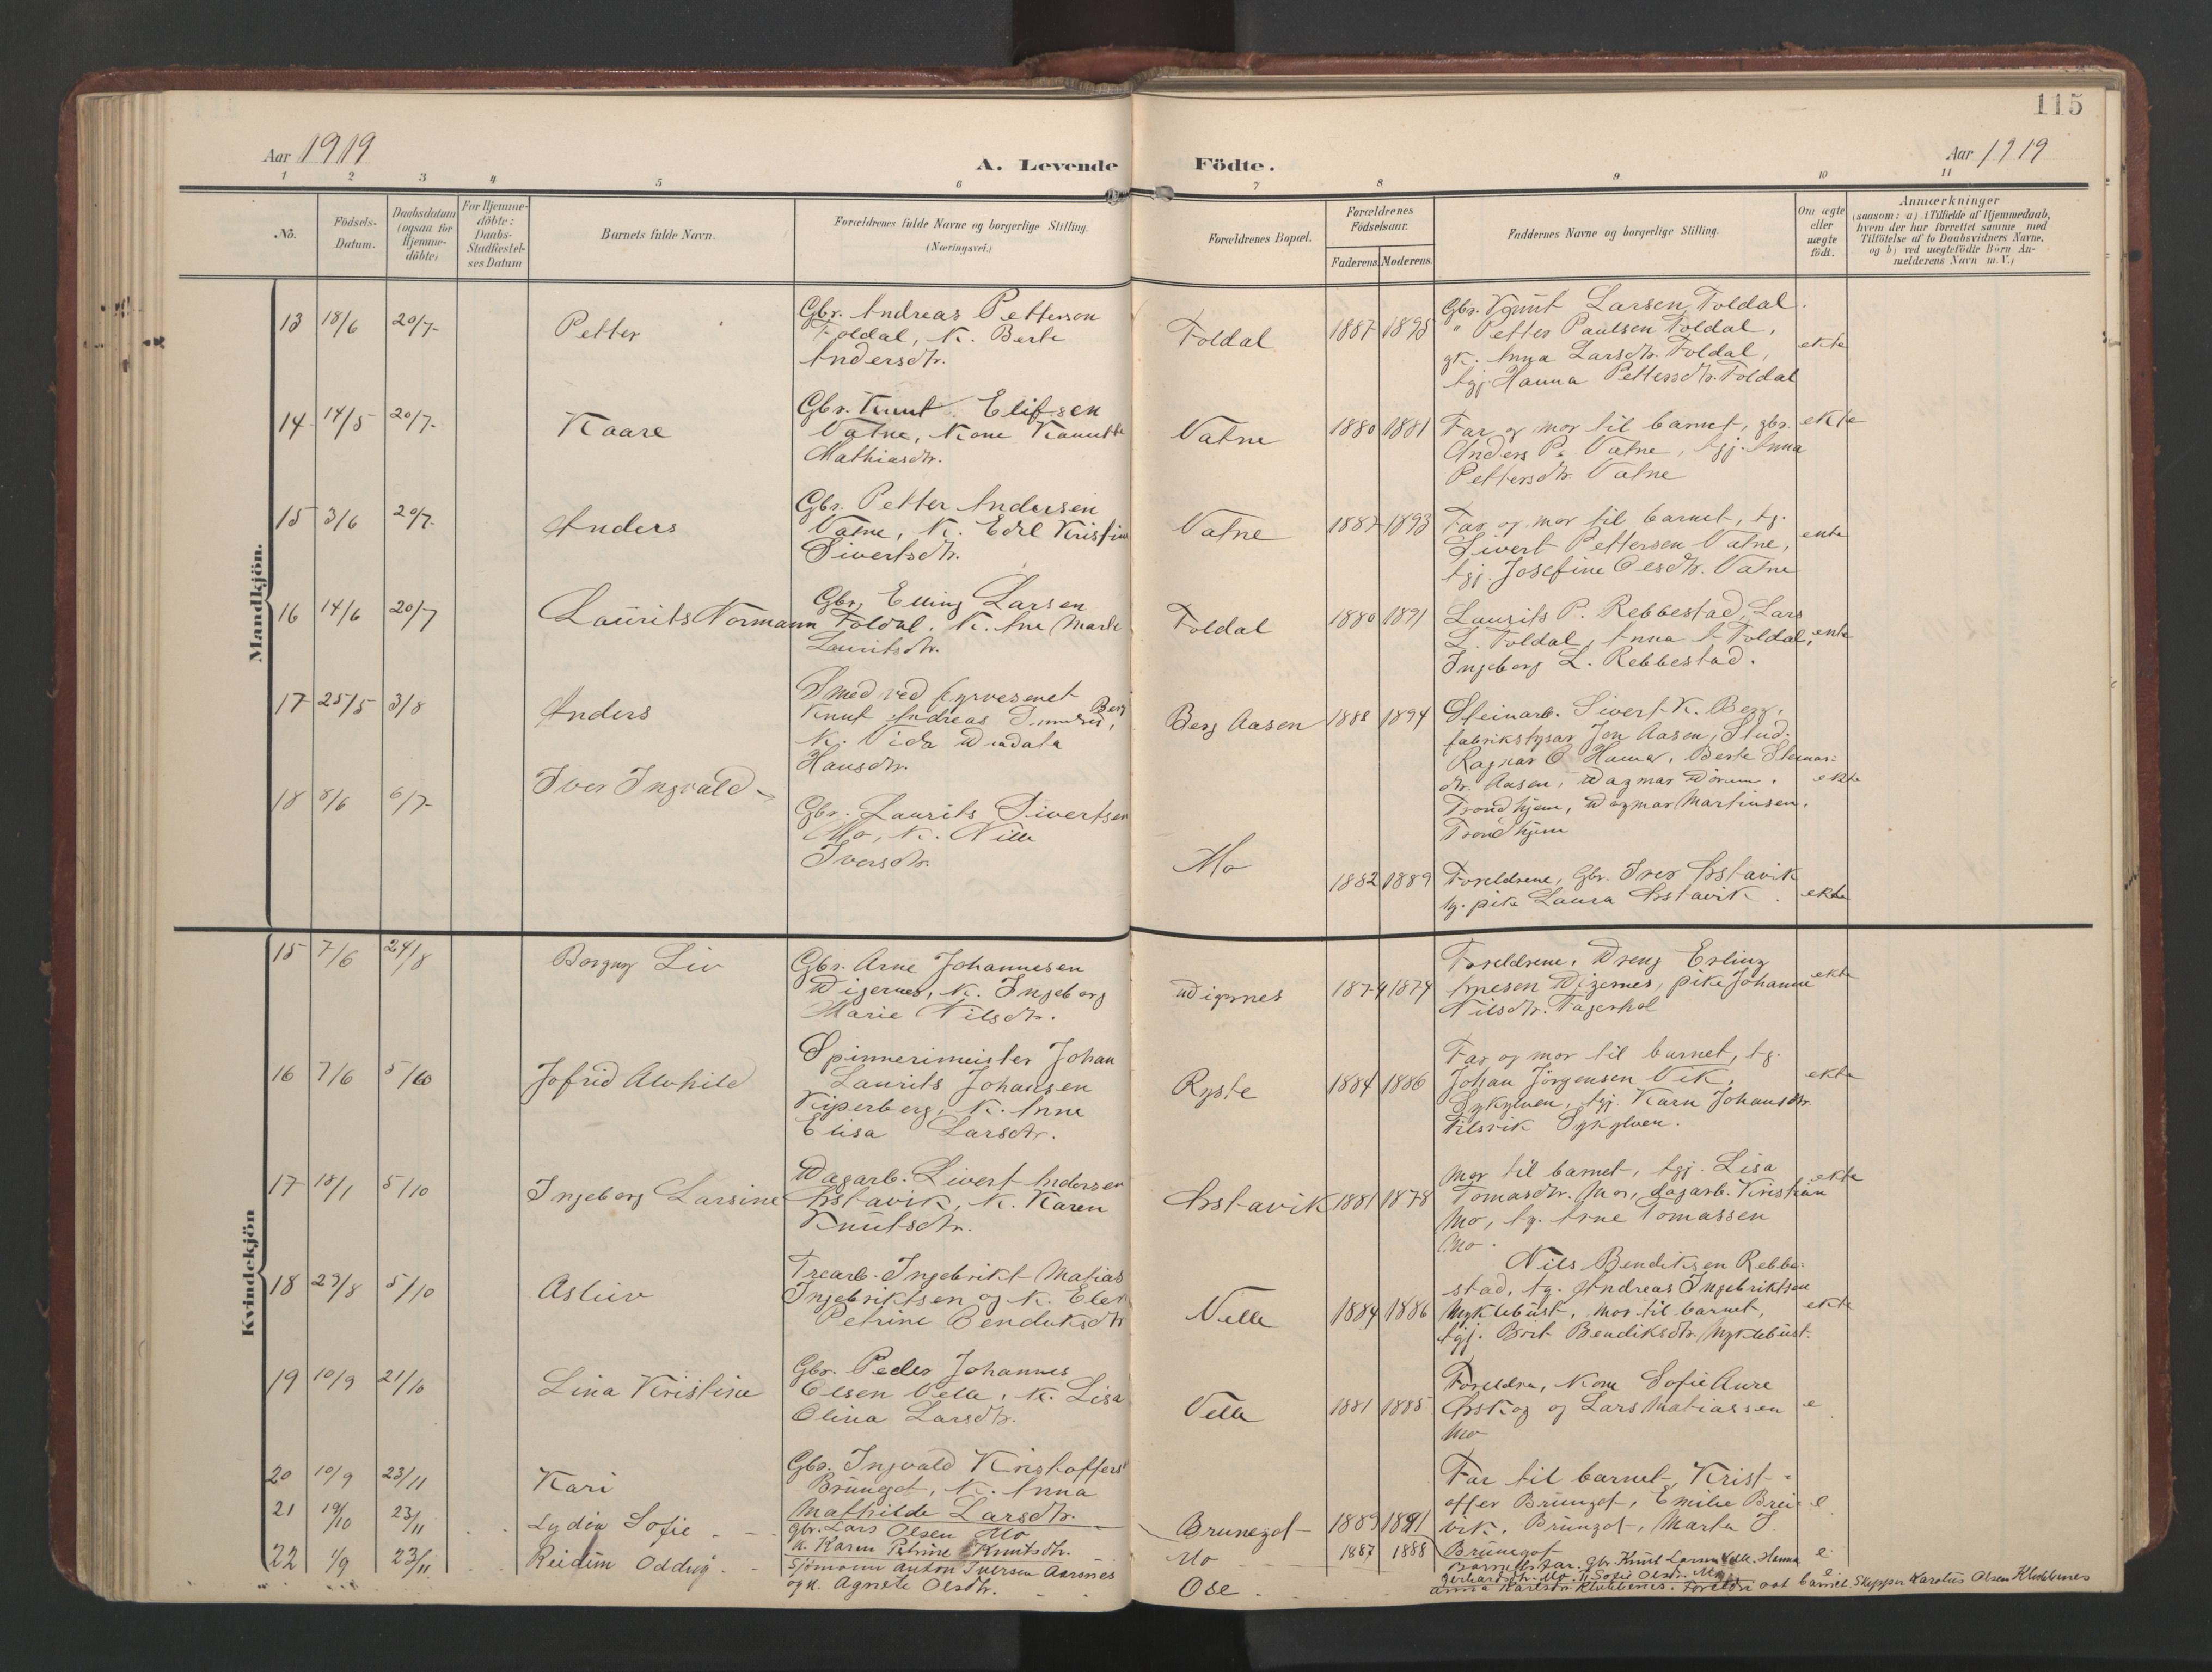 115
Aar 1919
A. Levende
Födte.
Aar 1919
1 2 3 4 5 6 7 8 9 10 11
No.
Födsels-
Datum.
Daabsdatum
(ogsaa for
Hjemme-
döbte)
For Hjemme-
döbte:
Daabs-
Stadfæstel-
ses Datum
Barnets fulde Navn.
Forældrenes fulde Navne og borgerlige Stilling.
(Næringsvei.)
Forældrenes Bopæl.
Forældrenes
Födselsaar.
Faderens. Moderens.
Faddernes Navne og borgerlige Stilling.
Om ægte
eller
uægte
födt.
Anmærkninger
(saasom: a) i Tilfælde af Hjemmedaab,
hvem der har forrettet samme med
Tilföielse af to Daabsvidners Navne,
og b) ved uægtefödte Börn An-
melderens Navn m. V.)
Mandkjön.
13 18/6 20/7 Petter
Gbr. Andreas Petterson
Foldal, K. Berte
Andersdtr.
Foldal 1887 1895
Gbr. Knut Larsen Foldal.
" Petter Paulsen Foldal,
gk. Anna Larsdtr. Foldal,
tgj. Hanna Pettersdtr. Foldal
ekte
14 14/5 20/7 Kaare
Gbr. Knut Elifsen
Vatne, Kone
Mathiasdtr.
Vatne 1880 1881
Far og mor til barnet, gbr.
Anders P. Vatne, tgj. Anna
Pettersdtr. Vatne
ekte
15 3/6 20/7 Anders
Gbr. Petter Andersen
Vatne, K. Edel Kristine
Sivertsdtr.
Vatne 1887 1893
Far og mor til barnet, tg.
Sivert Pettersen Vatne,
tgj. Josefine Olesdtr. Vatne
ekte
16 14/6 20/7 Laurits Normann
Gbr. Elling Larsen
Foldal. K. Ane Marte
Lauritsdtr.
Foldal 1880 1891
Laurits P. Rebbestad, Lars
L. Foldal, Anna A Foldal,
Ingeborg L. Rebbestad.
ekte
17 25/5 3/8 Anders
Smed ved fyrvesenet
Knut Andreas Berg,
K.
Hansdtr.
Berg Aasen 1888 1894
Steinarb. Sivert K. Berg,
Jon Aasen, Stud.
Ragnar O Hamar, Berte Steinar-
dtr. Aasen, Dagmar
Trondhjem, Dagmar Martinsen.
Trondhjem
ekte
18 8/6 6/7 Iver Ingvald
Gbr. Laurits Sivertsen
Mo, K. Nille
Iversdtr.
Mo 1882 1889
Foreldrene, Gbr. Iver Apstavik
tg. pike Laura Apstavik.
ekte
Kvindekjön
15 7/6 24/8 Borgny Liv
Gbr. Arne Johannesen
Digernes, K. Ingeborg
Marie Nilsdtr.
Digernes 1874 1874
Foreldrene, Dreng Erling
Arnesen Digernes, pike Johanne
Nilsdtr. Fagerhol
ekte
16 7/6 5/10 Jofrid Alvhild
Spinnerimeister Johan
Laurits Johansen
Kiperberg, K. Anne
Elisa Larsdtr.
Ryste 1884 1886
Far og mor til barnet, tg.
Johan Jörgensen Vik,
Sykylven, tgj. Karn Johansdtr.
Sykylven.
ekte
17 18/1 5/10 Ingeborg Larsine
Dagarb. Sivert Andersen
Apstavik, K. Karen
Knutsdtr.
Apstavik 1881 1878
Mor til barnet, tgj. Lisa
Tomasdtr. Mo, dagarb. Kristian
Mo, tg. Arne Tomassen
Mo.
ekte
18 29/8 5/10 Asliiv
Trearb. Ingebrikt Matias
Ingebriktsen og K. Elen
Petrine Bendiksdtr
Velle 1884 1886
Nils Bendiksen Rebbe-
stad, tg. Andreas Ingebriktsen
Myklebust, mor til barnet,
tgj. Brit Bendiksdtr. Myklebust.
ekte
19 10/9 21/10 Lina Kristine
Gbr. Peder Johannes
Olsen Velle, K. Lisa
Olina Larsdtr.
Velle 1881 1885
Foreldra, Kone Sofie Aure
Apskog og Lars Matiassen
Mo
e
20 10/9 23/11 Kari
Gbr. Ingvald Kristoffers
Brunegot, K. Anna
Mathilde Larsdtr.
Brunegot 1889 1891
Far til barnet, Krist-
offer Brungot, Emilie Brei-
vik, Brungot, Marta J.
Brunegot
e
21 19/10 23/11 Lydia Sofie
gbr. Lars Olsen Mo
K. Karen Petrine Knutsdtr.
Mo 1887 1888
Barnets far. Gbr. Knut Larsen Velle. Hanna
Gerhardsdtr. Mo. Sofie Olsdr. Mo
e
22 1/9 23/11 Reidun Oddny
Sjömann Anton Iversen Aarsnes
og K. Agnete Olsdtr.
Ose
Anna Karlsdtr Klubbenes. Foreldre aat barnet. Skipper Karolus Olsen Klubbenes
e